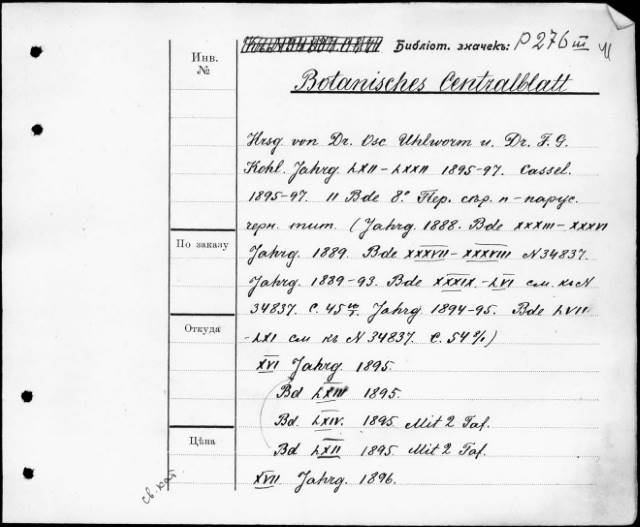 Инв.
№
Библіот. значекъ: P 276 III
Botanisches Centralblatt
Hrsg von Dr. Osc Uhlworm u. Dr. F. G.
Kohl. Jahrg LXII-LXXII 1895-97. Cassel.
1895-97. 11 Bde 8° Пер. сѣр. п-парус.
черн. тит. (Jahrg. 1888. Bde XXXIII-XXXVI
По заказу
Jahrg. 1889. Bde XXXVII-XXXVIII N 34837.
Jahrg. 1889-93. Bde XXXIX.-LVI см. къ N
34837. С. 45 Jahrg. 1894-95. Bde LVII-
Откуда
-LXI см къ N 34837. С. 54%)
XVI Jahrg. 1895.
Bd LXIII 1895.
Bd. LXIV. 1895 Mit 2 Taf.
Цѣна
Bd LXII 1895. Mit 2 Taf.
XVII Jahrg. 1896.
св. кат.